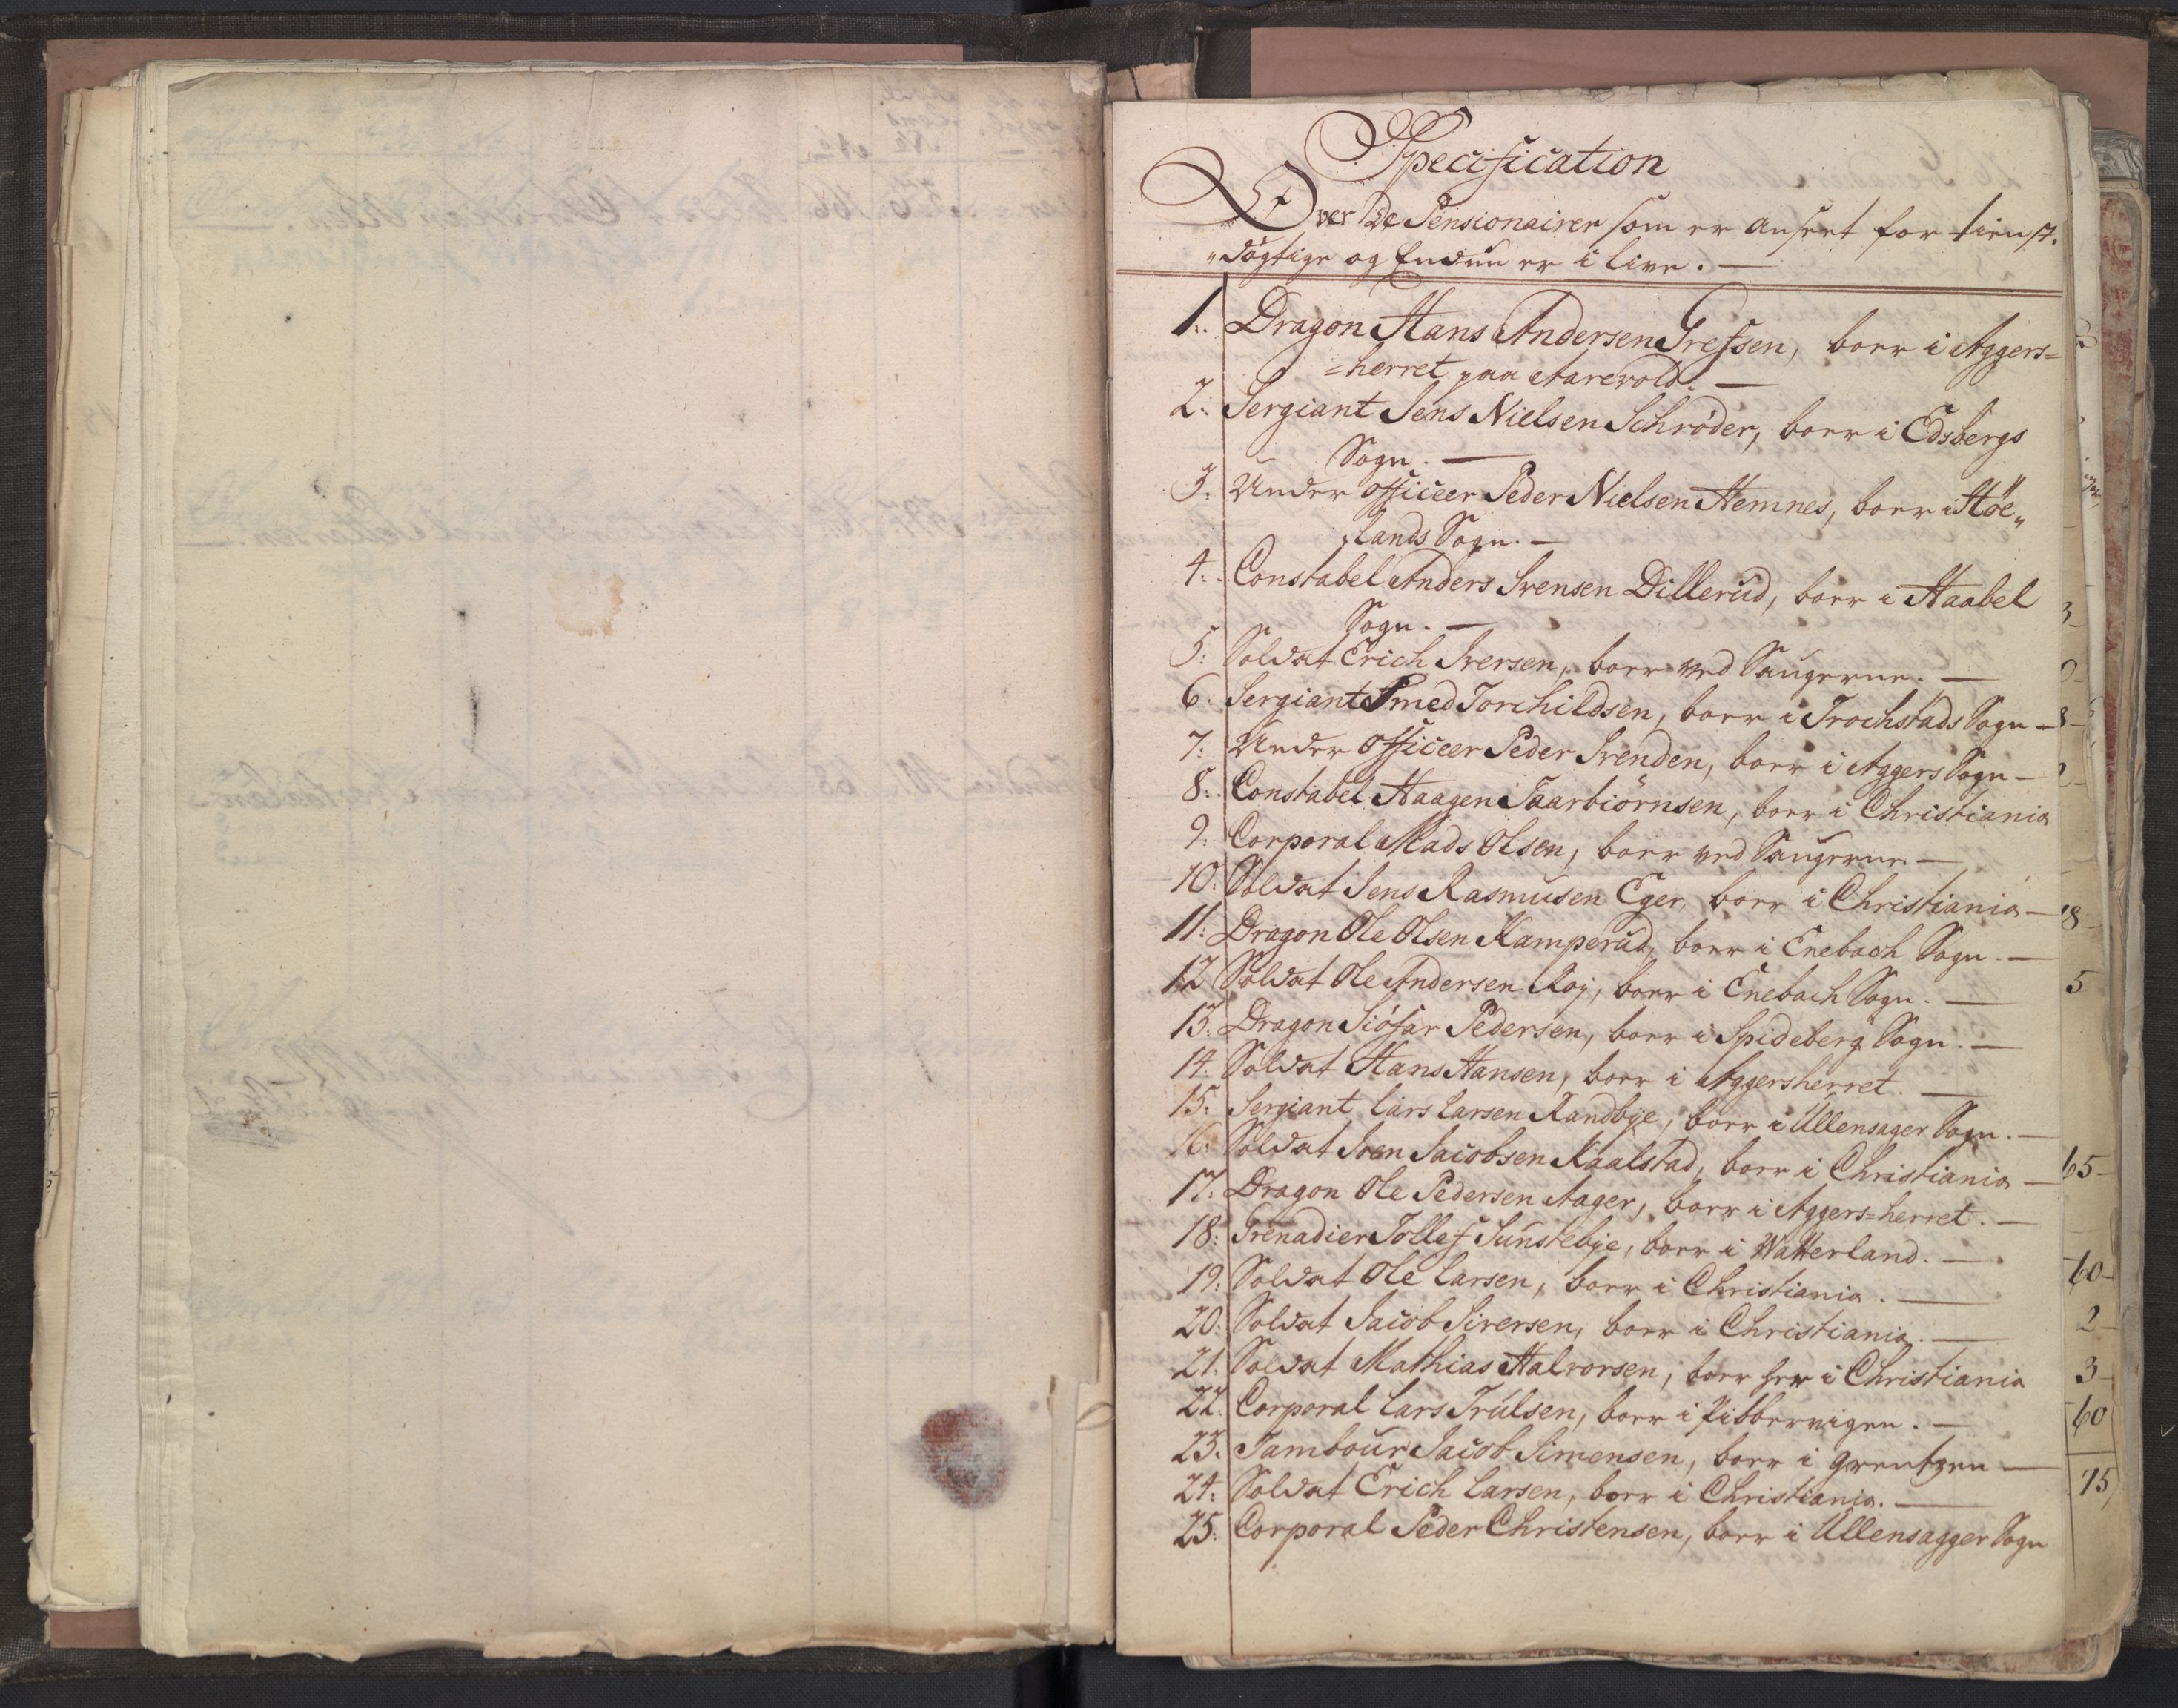 Specification
Over De Pensionairer som er ansert for tienst.
„dögtige og Endnu er i live. —
1. Dragon Hans Andersen Grefsen, boer i Aggers=
=herret paa Aarevold. —
2. Sergiant Jens Nielsen Schröder, boer i Edsbergs
Sogn. —
3. Under officeer Peder Nielsen Hemnes, boer i Höe„
„lands Sogn. —
4. Constabel Anders Svensen Dillerud, boer i Haabel
Sogn. —
5. Soldat Erich Iversen, boer ved Saugerne. —
6. Sergiant Amed Torchildsen, boer i Trochstads Sogn —
7. Under officeer Peder Svenden, boer i Aggers Sogn —
8. Constabel Haagen Taarbiörnsen, boer i Christiania
9. Corporal Mads Olsen, boer ved Saugerne —
10. Soldat Jens Rasmusen Eger, boer i Christiania —
11. Dragon Ole Olsen Kamperud, boer i Enebach Sogn. —
12 Soldat Ole Andersen Roj, boer i Enebach Sogn. —
13. Dragon Siöfar Pedersen, boer i Spideberg Sogn. —
14. Soldat Hans Hansen, boer i Aggersherret. —
15. Sergiant Lars Larsen Randbye, boer i Ullensager Sogn. —
16. Soldat Sven Jacobsen Kaalstad, boer i Christiania —
17. Dragon Ole Pedersen Aager, boer i Aggers=herret. —
18. Grenadier Tollef Sunstebye, boer i Watterland. —
19. Soldat Ole Larsen, boer i Christiania. —
20. Soldat Jacob Siversen, boer i Christiania. —
21. Soldat Mathias Halvorsen, boer her i Christiania
22. Corporal Lars Trulsen, boer i Pibbervigen. —
23. Tambour Jacob Simensen, boer i grentzen —
24. Soldat Erich Larsen, boer i Christiania. —
25. Corporal Peder Christensen, boer i Ullensagger Sogn